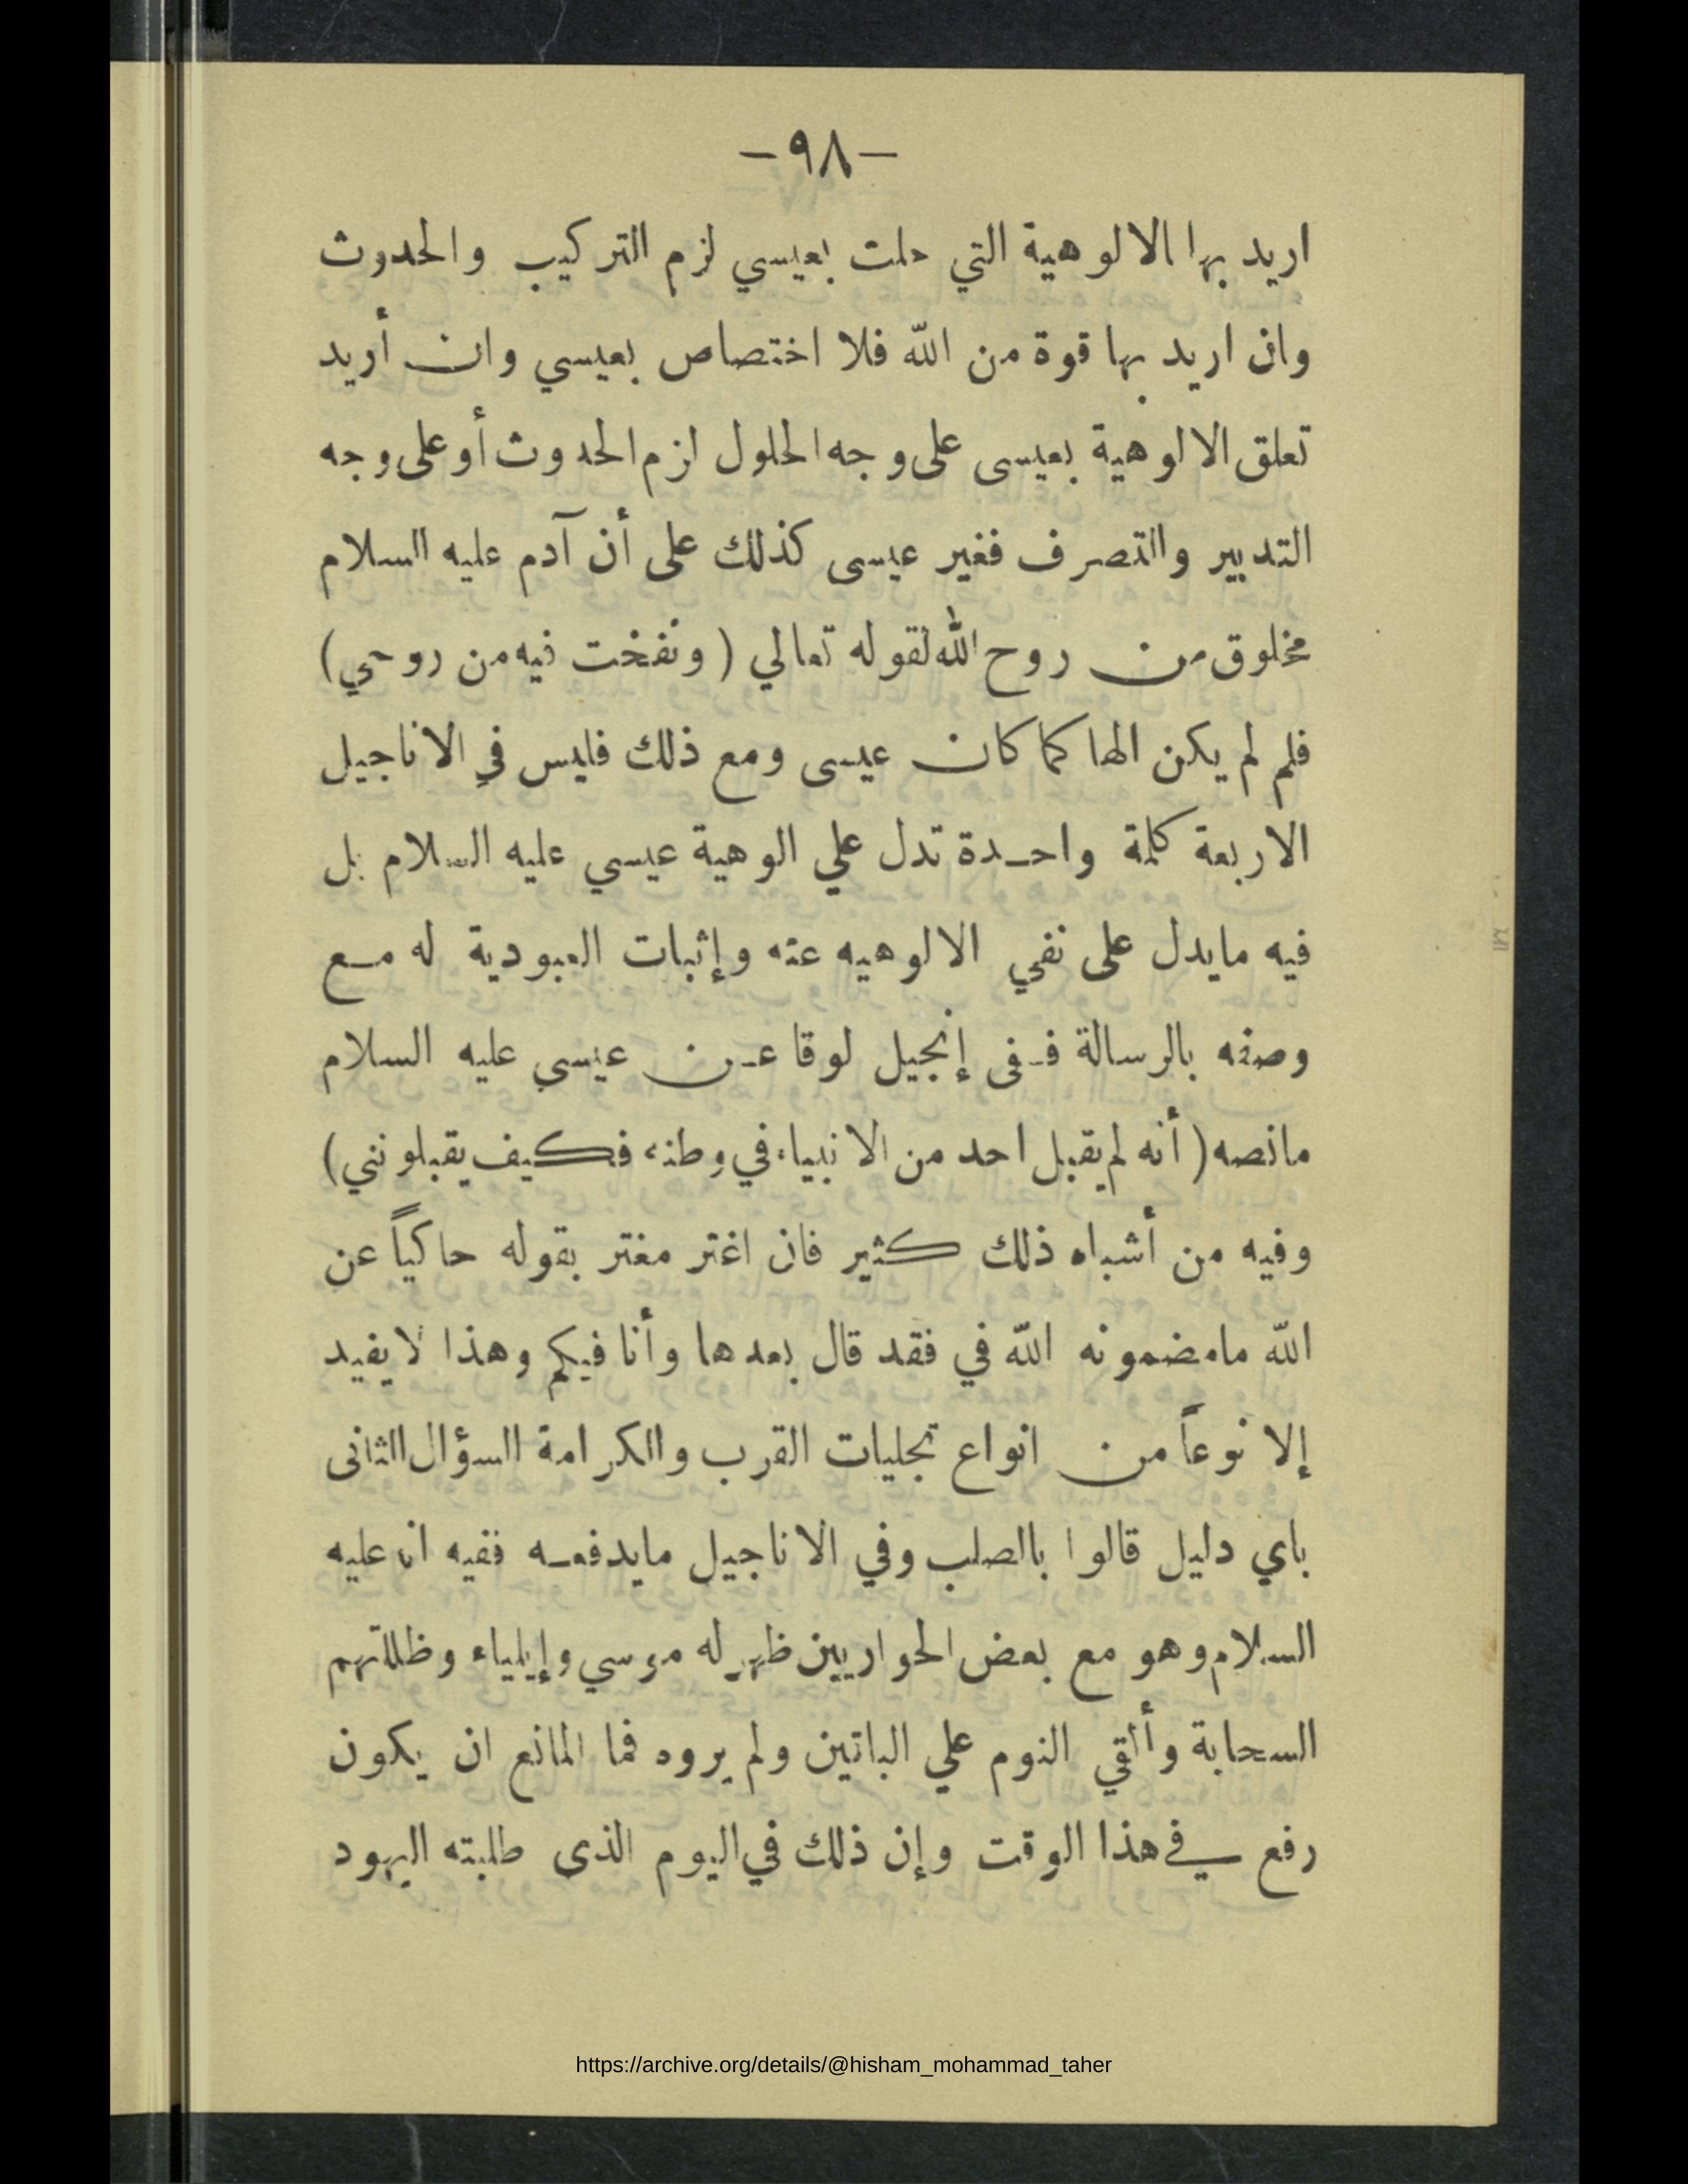 -٩٨-
اريد بها الالوهية التي حلت بعيسي لزم التركيب والحدوث
وان اريد بها قوة من الله فلا اختصاص بعيسي وان أريد
تعلق الالوهية بعيسى على وجه الحلول لزم الحدوث أو على وجه
التدبير والتصرف فغير عيسى كذلك على أن آدم عليه السلام
مخلوق من روح الله لقوله تعالي ( ونفخت فيه من روحي )
فلم لم يكن الها كما كان عيسى ومع ذلك فليس في الاناجيل
الاربعة كلمة واحدة تدل علي الوهية عيسي عليه السلام بل
فيه مايدل على نفي الالوهيه عنه وإثبات العبودية له مع
وصفه بالرسالة ففى إنجيل لوقا عن عيسي عليه السلام
مانصه ( أنه لم يقبل احد من الانبياء في وطنه فكيف يقبلونني )
وفيه من أشباه ذلك كثير فان اغتر مغتر بقوله حاكياً عن
الله مامضمونه الله في فقد قال بعدها وأنا فيكم وهذا لايفيد
إلا نوعاً من انواع تجليات القرب والكرامة السؤال الثانى
باي دليل قالوا بالصلب وفي الاناجيل مايدفعه ففيه انه عليه
السلام وهو مع بعض الحواريين ظهر له موسي وإيلياء وظللتهم
السحابة وألقي النوم علي الباتين ولم يروه فما المانع ان يكون
رفع في هذا الوقت وإن ذلك في اليوم الذى طلبته اليهود
https://archive.org/details/@hisham_mohammad_taher